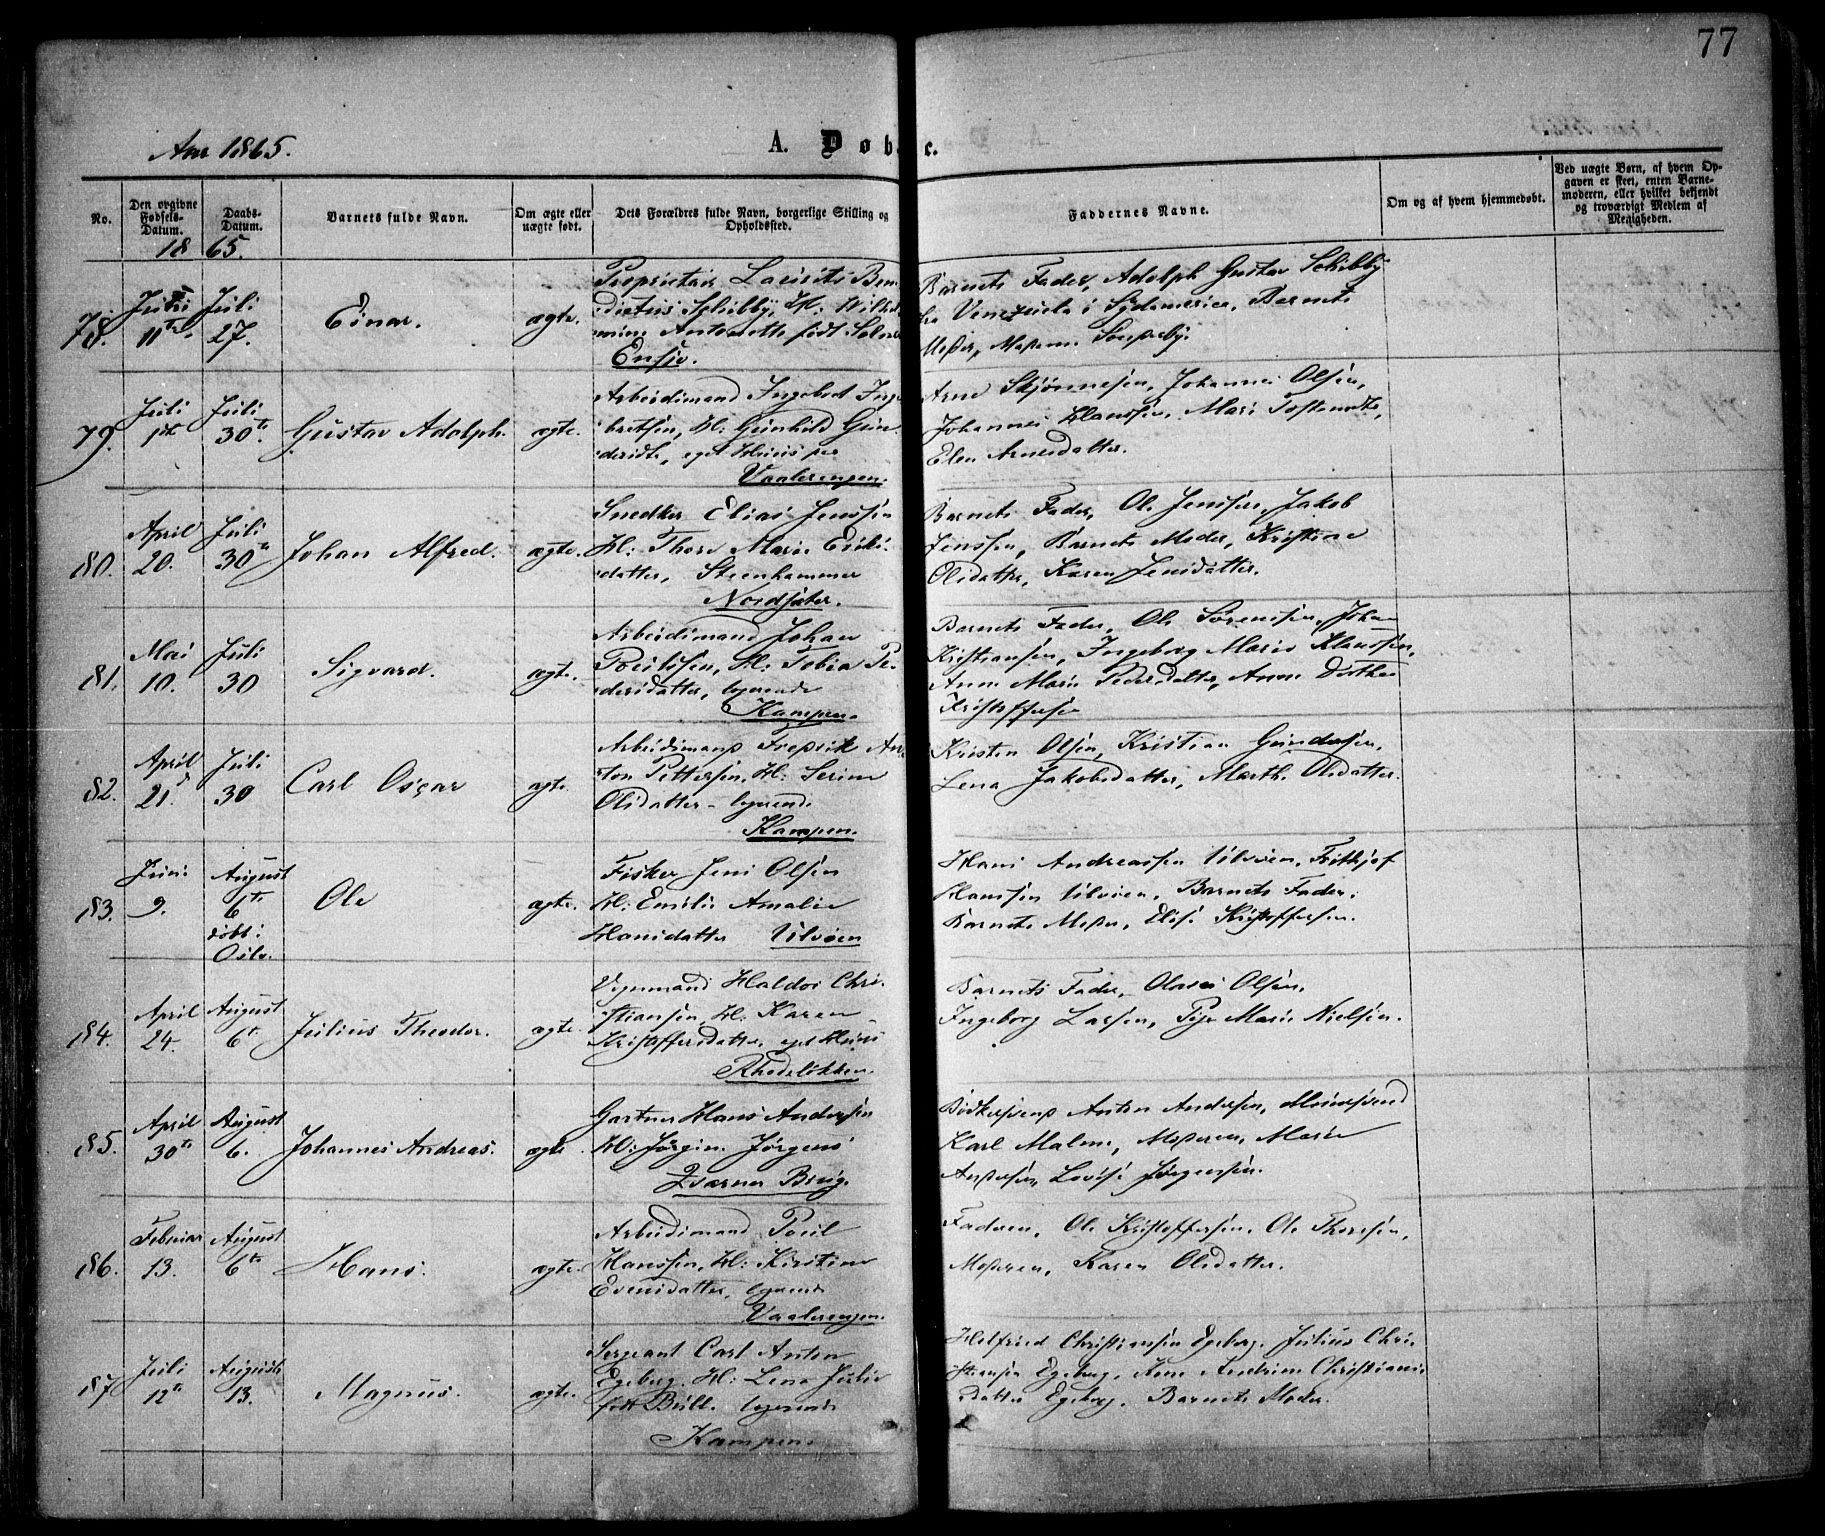 77
Aar 1865.
A. Døbte.
No.
Den opgivne Fødsels-Datum.
Daabs-Datum.
Barnets fulde Navn.
Om ægte eller uægte født.
Dets Forældres fulde Navn, borgerlige Stilling og Opholdssted.
Faddernes Navne.
Om og af hvem hjemmedøbt.
Ved uægte Børn, af hvem Opgaven er skeet, enten Barnemoderen, eller hvilket bekjendt og troværdigt Medlem af Menigheden.
18 65.
78. Juni 11te Juli 27. Einar. ægte.
Proprietær Laurits Ben
dictus Schibbÿ, H: Wilhel
mine Antonette født
Ensjø.
Barnets Fader, Adolph Gustav Schibbÿ
fra Venezuela i Sydamerica, Barnets
Moder, Madam
79. Juli 1ste Juli 30te. Gustav Adolph. ægte.
Arbeidsmand Ingebret Inge
bretsen, H: Gunhild Gun
dersdtr, eget Huus paa
Vaalerengen.
Arne Skjønnesen, Johannes Olsen,
Johannes Hanssen, Mari Tostensdtr,
Elen Arnesdatter.
80. April 20. Juli 30te Johan Alfred. ægte.
Snedker Elias Jenssen
H: Thore Marie Eriks
datter, Steenhammer
Nordsæter.
Barnets Fader, Ole Jenssen, Jakob
Jenssen, Barnets Moder, Kristine
Olsdatter, Karen Jensdatter.
81. Mai 10. Juli 30 Sigvard. ægte.
Arbeidsmand Johan
Poulsen, H: Tobia Pe
dersdatter, logerende
Kampen.
Barnets Fader, Ole Sørenssen, Johan
Kristiansen, Ingeborg Marie Klaussen,
Anne Marie Pedersdatter, Anne Dorthea
Kristoffersen
82. April 21. Juli 30 Carl Oscar ægte
Arbeidsmand Fredrik An
ton Pettersen, H: Serine
Olsdatter – logerende
Kampen.
Kristen Olsen, Kristian Gundersen,
Lena Jakobsdatter, Marthe Olsdatter.
83. Juni 9. August 6te døbt i Oslo. Ole ægte.
Fisker Jens Olsen
H: Emilie Amalie
Hansdatter Ulvøen
Hans Andreassen Ulvøen, Frithjof
Hanssen Ulvøen, Barnets Fader,
Barnets Moder, Elise Kristoffersen.
84. April 24. August 6te Julius Theodor. ægte.
Vognmand Haldor Chri
stiansen, H: Karen
Kristoffersdatter, eget Huus
Rhodeløkken.
Barnets Fader, Olaus Olsen,
Ingeborg Larsen, Pige Marie Nielsen.
85. April 30te August 6. Johannes Andreas. ægte
Gartner Hans Andersen
H: Jørgine Jørgens
Qværner Brug.
Bødkersvend Anton Andersen, Muursvend
Karl Malm, Moderen, Marie
Andersen, Lovise Jørgensen.
86. Februar 13. August 6te Hans. ægte.
Arbeidsmand Poul
Hanssen, H: Kirstine
Evensdatter, logerende
Vaalerengen.
Faderen, Ole Kristoffersen, Ole Thoresen,
Moderen, Karen Olsdatter.
87. Juli 12te August 13. Magnus. ægte.
Sergeant Carl Anton
Egeberg, H: Lena Julie
født Bull. logerende
Kampen.
Helfried Christiansen Egeberg, Julius Chri
stiansen Egeberg, Anne Andrine Christians
datter Egeberg, Barnets Moder.